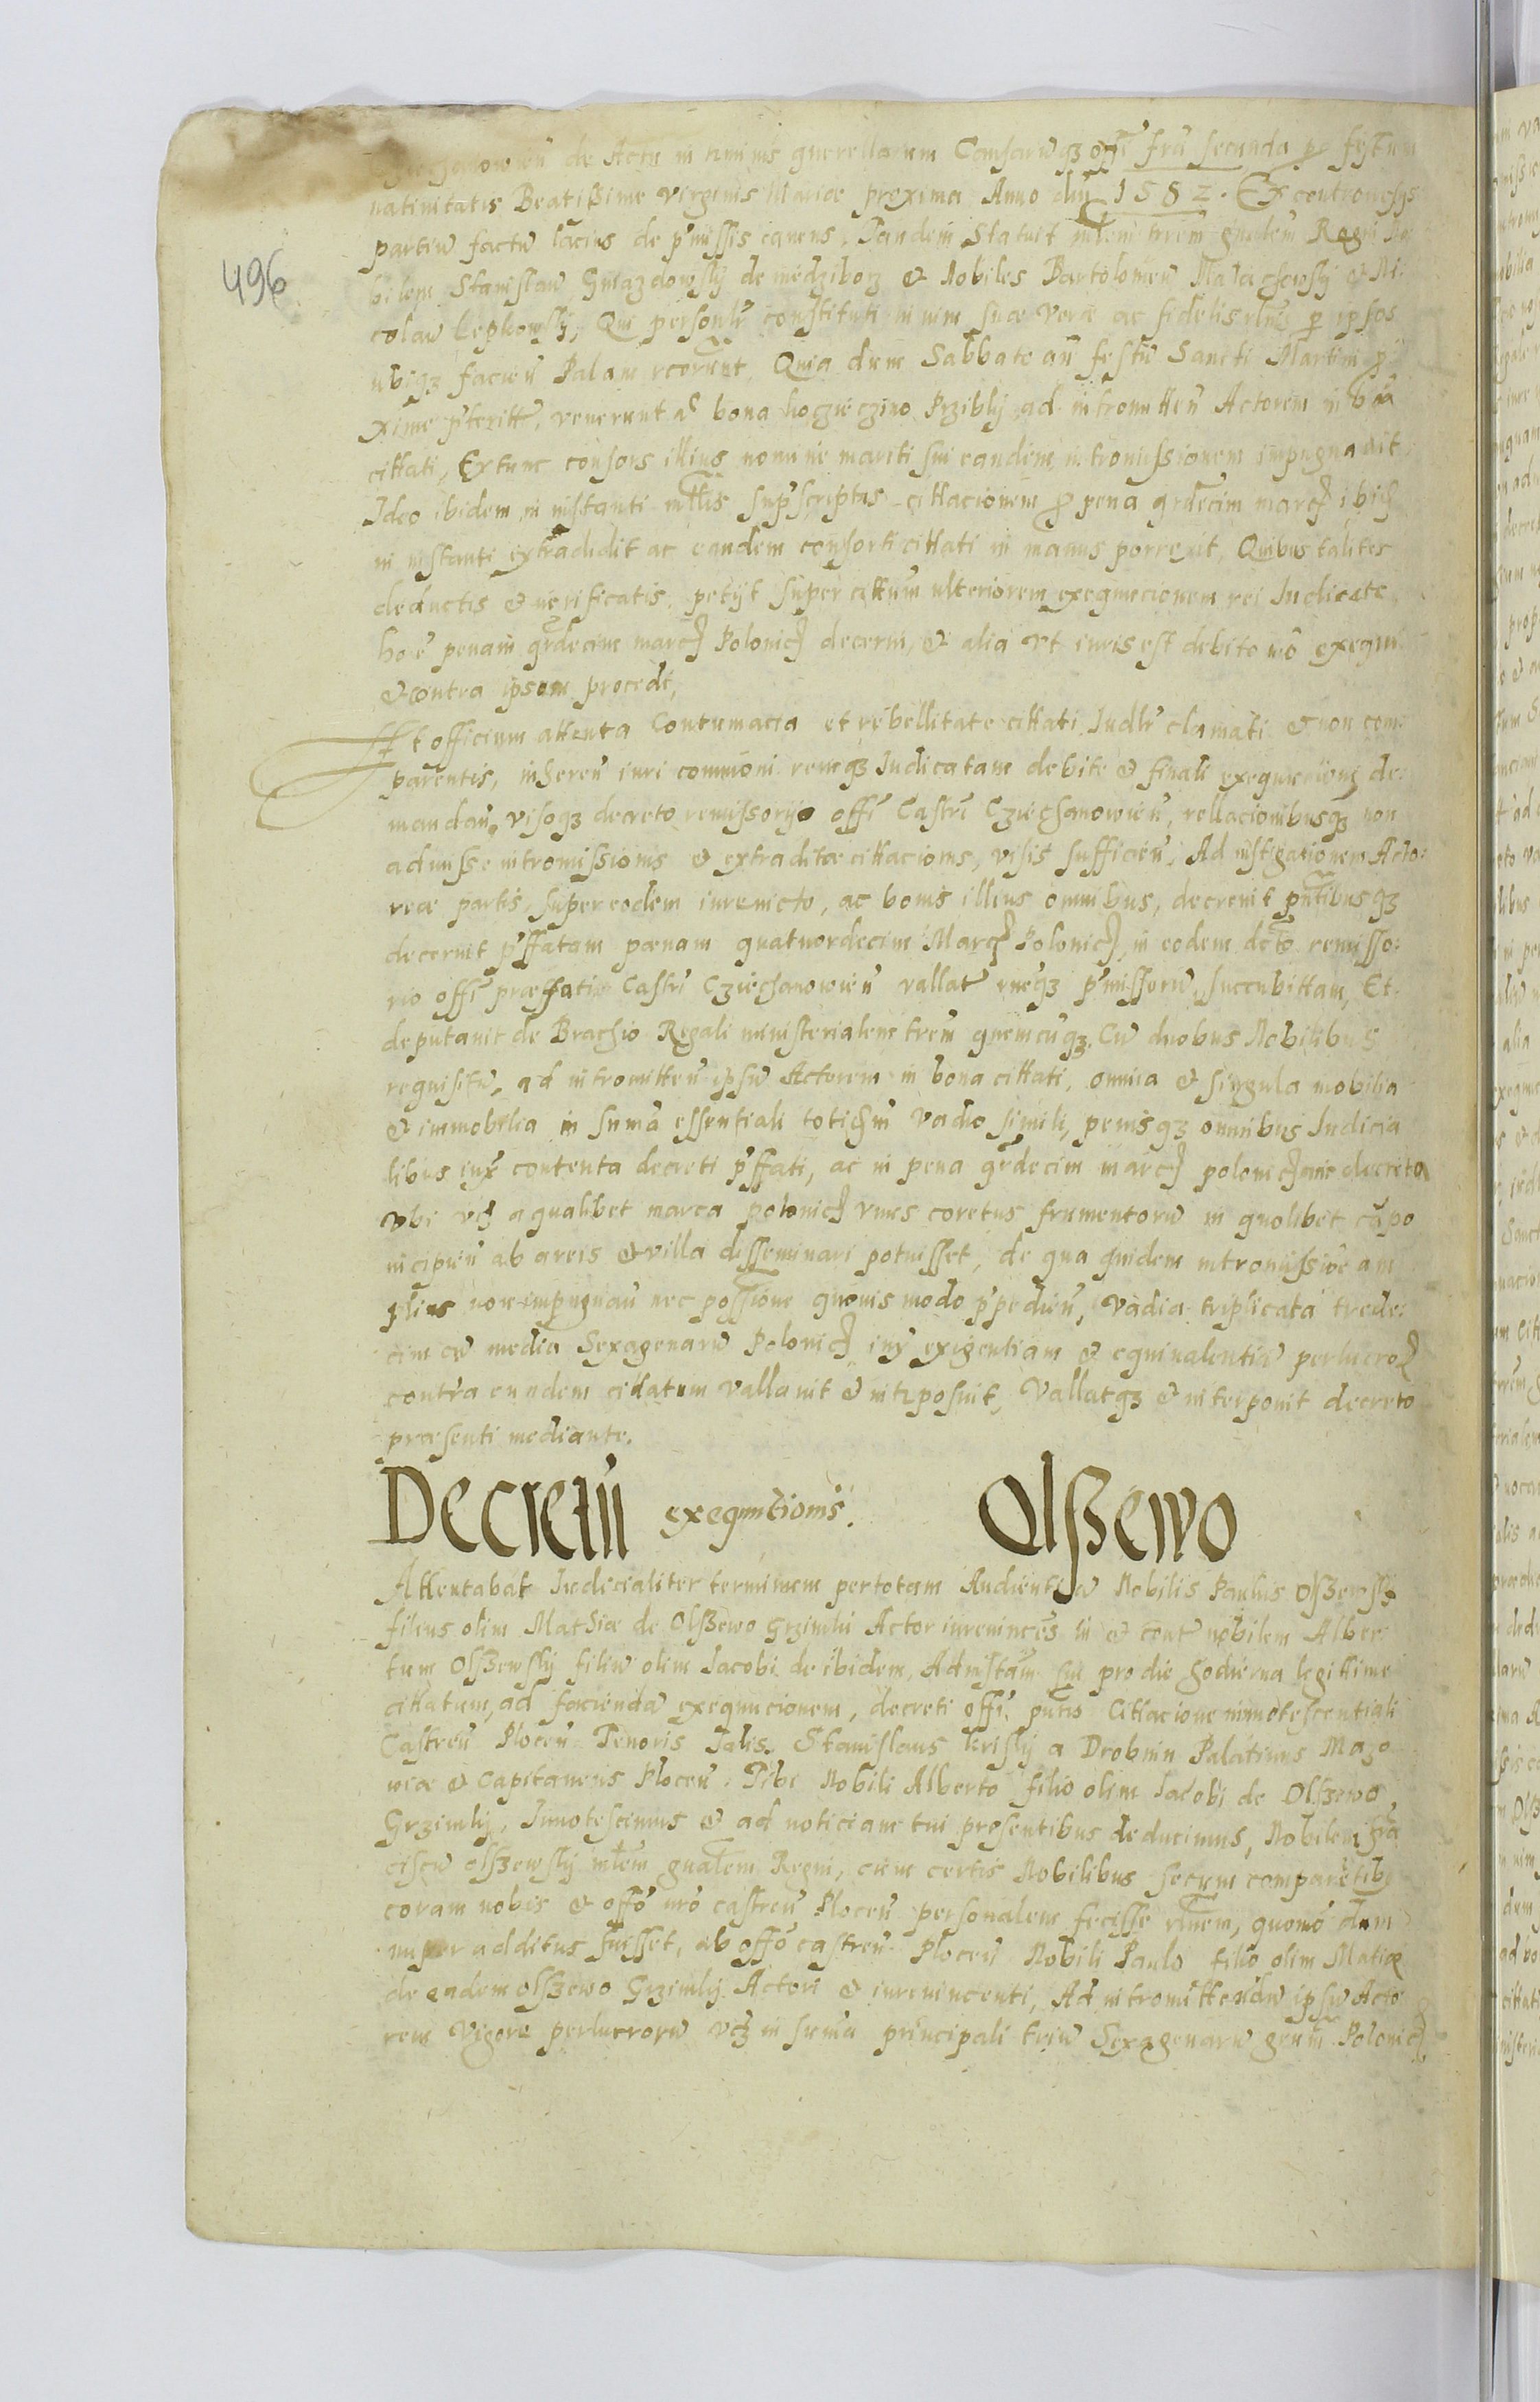 de Actu in terminis querellarum Causarūqʒ offī fria secunda p festum
natiuitatis Beatißime virginis Mariæ proxima Anno dni 1582. Ex controuersijs
partiū factū lacius de p'missis canens, Tandem Statuit mlem trrem gnalem Regni No
bilem Stanislaū Gniazdowskj de miedziborz & Nobiles Bartolomeū Malachowskj & Ni:
496
colaū Lepkowskj, Qui personlr constituti in vim suæ veræ ac fidelis rlnis p ipsos
ubiqʒ faciēn Palam rcorunt, Quia dum Sabbato añ festū Sancti Martini p
xime p'teritt, venerunt ad bona Przibkj ad intromitten Actorem in bona
cittati, Extunc consors illius nomine mariti sui eandem intromissionem impugnauit
Ideo ibidem in instanti mlis suprscriptus cittacionem p pena qrdecim marc ibid
in instanti extradidit ac eandem consorti cittati in manus porrexit, Quibus taliter
deductis & verificatis, petijt super cittatum ulteriorem exequucionem rei Iudicate
ho e penam qrdecim marc Polonic decerni, & alia vt iuris est debito mō exequi
& contra ipsum procedi,
Et officium attenta Contumacia et rebellitate cittati Iudlr clamati & non com:
parentis, inheren iuri communi remqʒ Iudicatam debite & finali exequucioni de:
mandan, visoqʒ decreto remissorijo offi Castri Cziechanowien, rellacionibusqʒ non
admisse intromissionis & extraditæ cittacionis, visis sufficien, Ad instigationem Acto:
reæ partis, super eodem iureuicto, ac bonis illius omnibus, decreuit pntibusqʒ
decernit p'ffatam pænam quatuordecim Marc Polonic, in eodem dcto remisso:
rio offi præffati Castri Cziechanowien vallat p'missorū, succubittam, Et
deputauit de Brachio Regali ministerialem trem quemcuqʒ Cū duobus Nobilibus
requisitū, ad intromitten ipsū Actorem in bona cittati, omnia & singula mobilia
& immobilia in suma essentiali totidem vadio simili, penisqʒ omnibus Iudicia
libus iux contenta decreti p'ffati, ac in pena qrdecim marc polonic decreto
Vbi vcz a qualibet marca polonic vnus coretus frumentorū in quolibet cāpo
incipien ab areis & villa desseminari potuisset, de qua quidem intromissiōe am
plius non impugnan nec possione quouis modo p'pedien, Vadia triplicata trede:
cim cū media Sexagenarū Polonic iux exigentiam & equiualentiā perlucro
contra eundem cittatum vallauit & intrposuit, Vallatqʒ & interponit decreto
præsenti mediante.
Decretū exequutionis. Olßewo
Attentabat Iudicialiter terminum pertotam Audientiā Nobilis Paulus Olszewskj
filius olim Mathiæ de Olßewo Grzimki Actor iureuincēs in & contr nobilem Alber
tum Olßewskj filiū olim Iacobi de ibidem, Ad instam sui pro die hodierna legittime
cittatum, ad faciendā exequucionem, decreti offi. pntis Cittacione innotescentiali
Castren Plocen Tenoris Talis. Stanislaus Kriskj a Drobnin Palatinus Mazo
uiæ & Capitaneus Plocen. Tibi Nobili Alberto filio olim Iacobi de Olßewo
Grzimkj, Innotescimus & ad noticiam tui presentibus deducimus, Nobilem fra
ciscū olßewskj mlem gnalem Regni, cum certis Nobilibus secum comparētibȝ
coram nobis & offo nrō castren Plocen personalem fecisse rlnem, quomō dum
nuper additus fuisset, ab offo castren Plocen Nobili Paulo filio olim Matiæ
de eadem olßewo Grzimkj Actori & iureuincenti, Ad intromittendū ipsū Acto
rem Vigore perlucrorū vcz in suma principali triū Sexagenarū grum Polonic